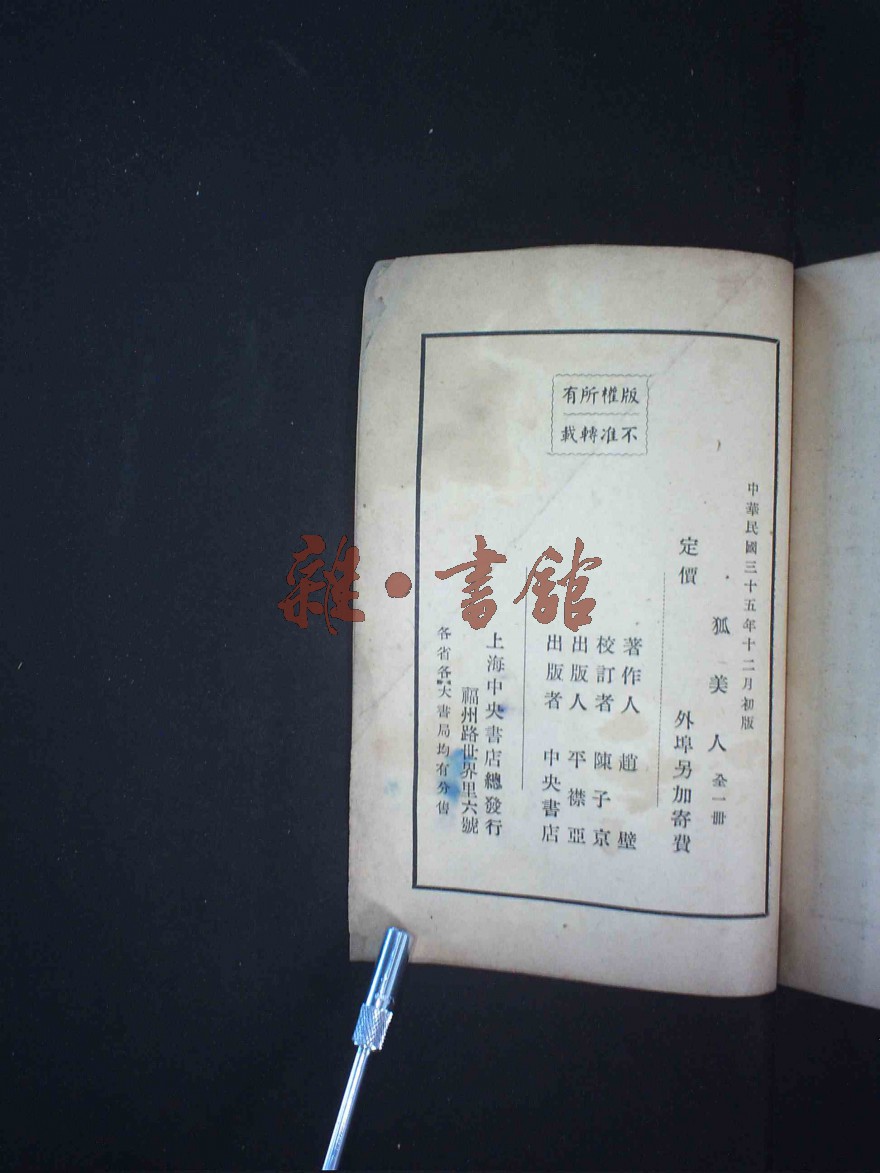 版權所有
不准轉載
中華民國三十五年十二月初版
狐美人 全一冊
定價 外埠另加寄費
著作人 趙壁
校訂者 陳子京
出版人 平襟亞
出版者 中央書店
上海中央書店總發行
福州路世界里六號
各省各大書局均有分售
雜·書館